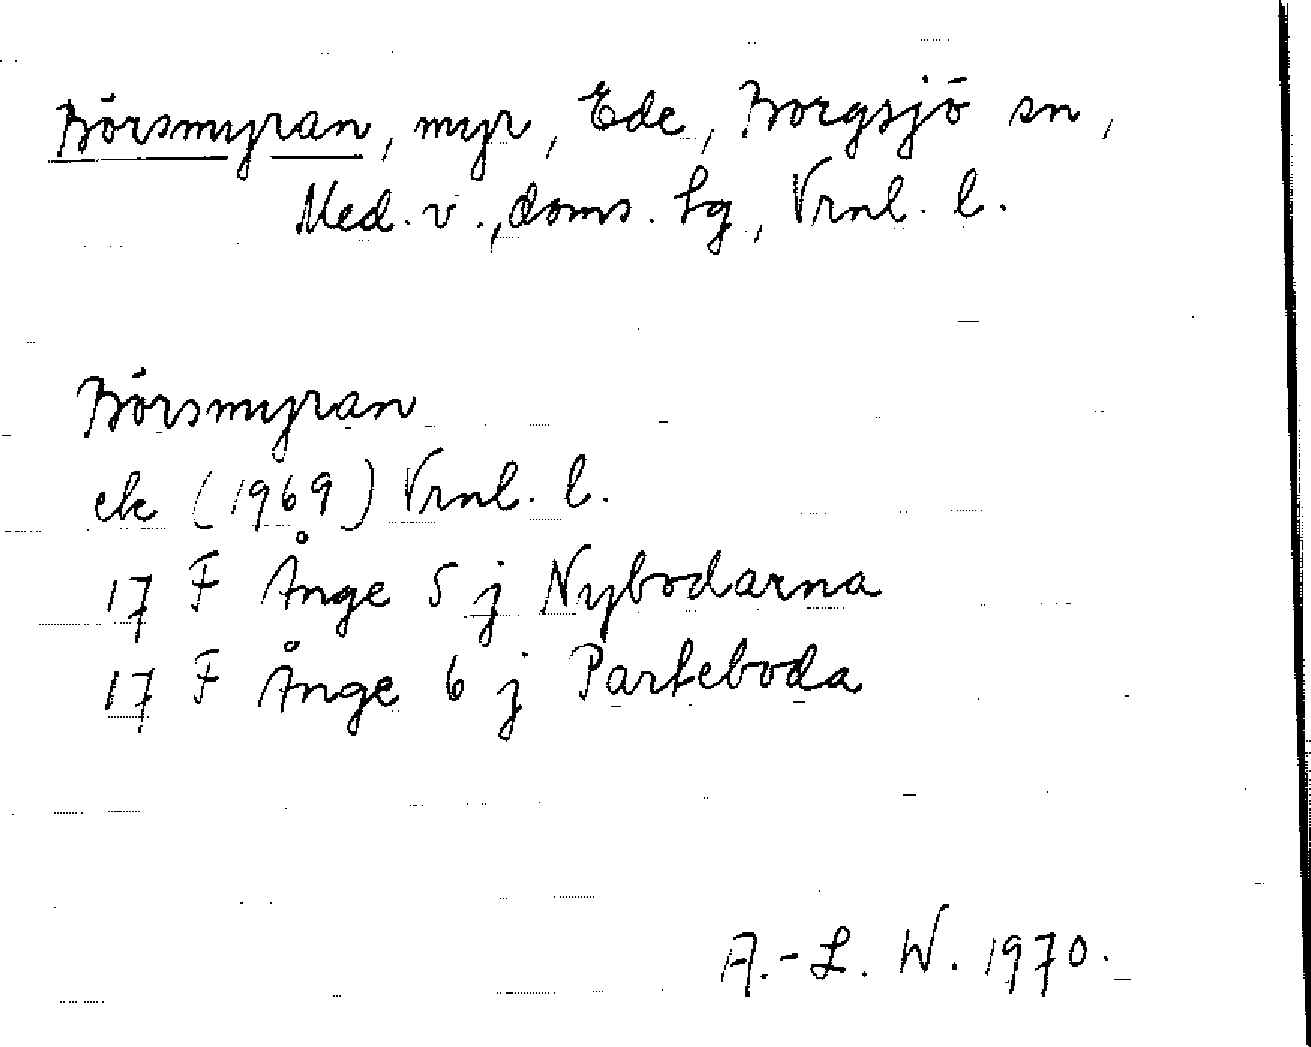 Börsmyran, myr, Ede, Borgsjö sn,
Med. v., doms. lg, Vrnl. l.
Börsmyran
ek (1969) Vrnl. l.
17 F Ånge 5 j Nybodarna
17 F Ånge 6 j Parteboda
A.-L. W. 1970.